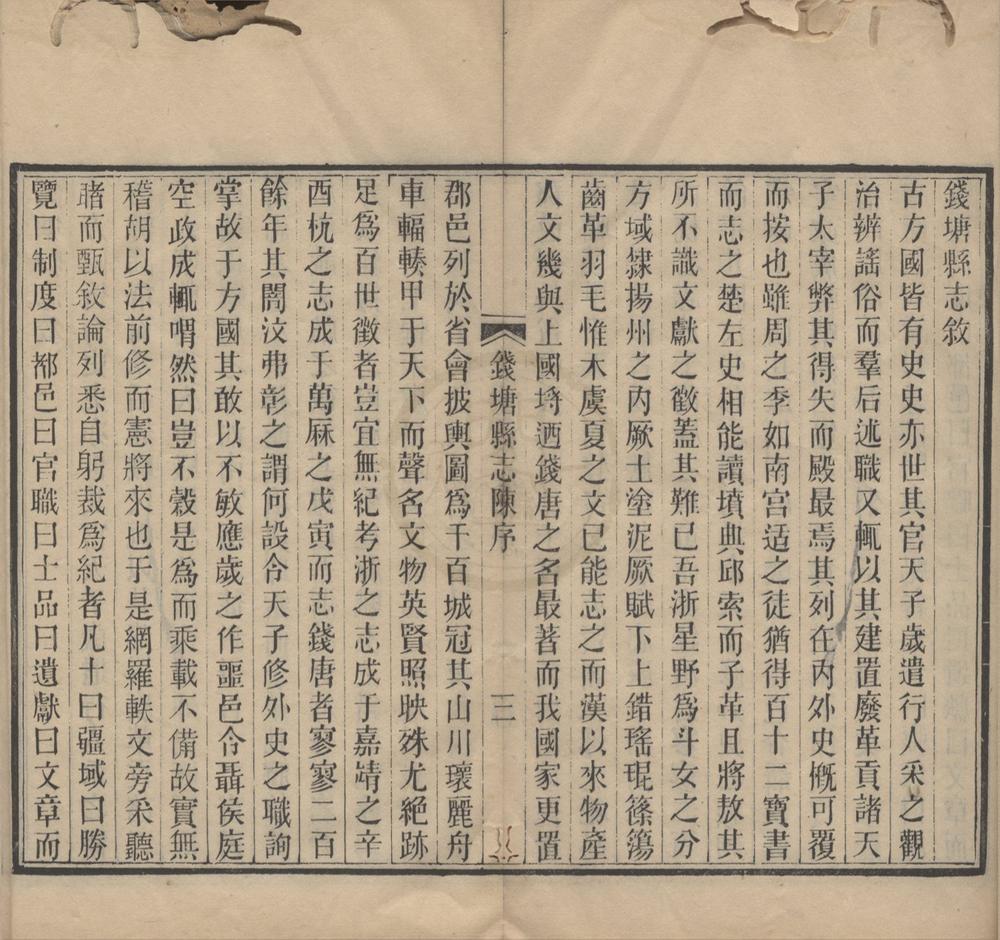 錢塘縣志敘
古方國皆有史史亦世其官天子歲遣行人采之觀
治辨謠俗而羣后述職又輒以其建置廢革貢諸天
子太宰弊其得失而殿最焉其列在內外史慨可覆
而按也雖周之季如南宮适之徒猶得百十二寶書
而志之楚左史相能讀墳典邱索而子革且將敖其
所不識文獻之徵蓋其難已吾浙星野爲斗女之分
方域隷揚州之內厥土塗泥厥賦下上錯瑤琨篠簜
齒革羽毛惟木虞夏之文已能志之而漢以來物產
人文幾與上國埒迺錢唐之名最著而我國家更置
錢塘縣志陳序
三
郡邑列於省會披輿圖爲千百城冠其山川瓌麗舟
車輻輳甲于天下而聲名文物英賢照映殊尤絕跡
足爲百世徵者豈宜無紀考浙之志成于嘉靖之辛
酉杭之志成于萬厤之戊寅而志錢唐者寥寥二百
餘年其闇汶弗彰之謂何設令天子修外史之職詢
掌故于方國其敢以不敏應歲之作噩邑令聶侯庭
空政成輒喟然曰豈不穀是爲而乘載不備故實無
稽胡以法前修而憲將來也于是網羅軼文旁采聽
睹而甄敘論列悉自躬裁爲紀者凡十曰疆域曰勝
覽曰制度曰都邑曰官職曰士品曰遺獻曰文章而